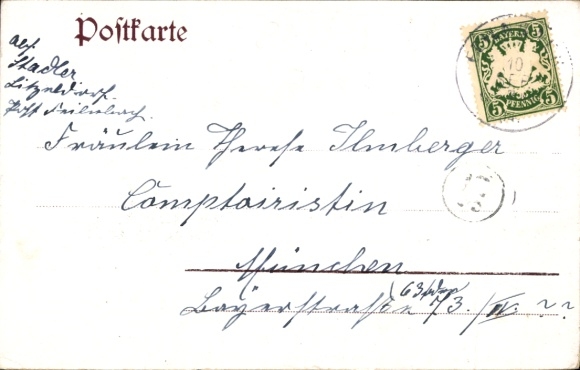 Postkarte
Abs.
Stadler
Litzeldorf.
Post Feilnbach.
5 BAYERN 5
5 PFENNIG 5
Fräulein Therese Ilmberger
Comptoiristin
München
63 oder
Bayerstraße 73./IV. ??